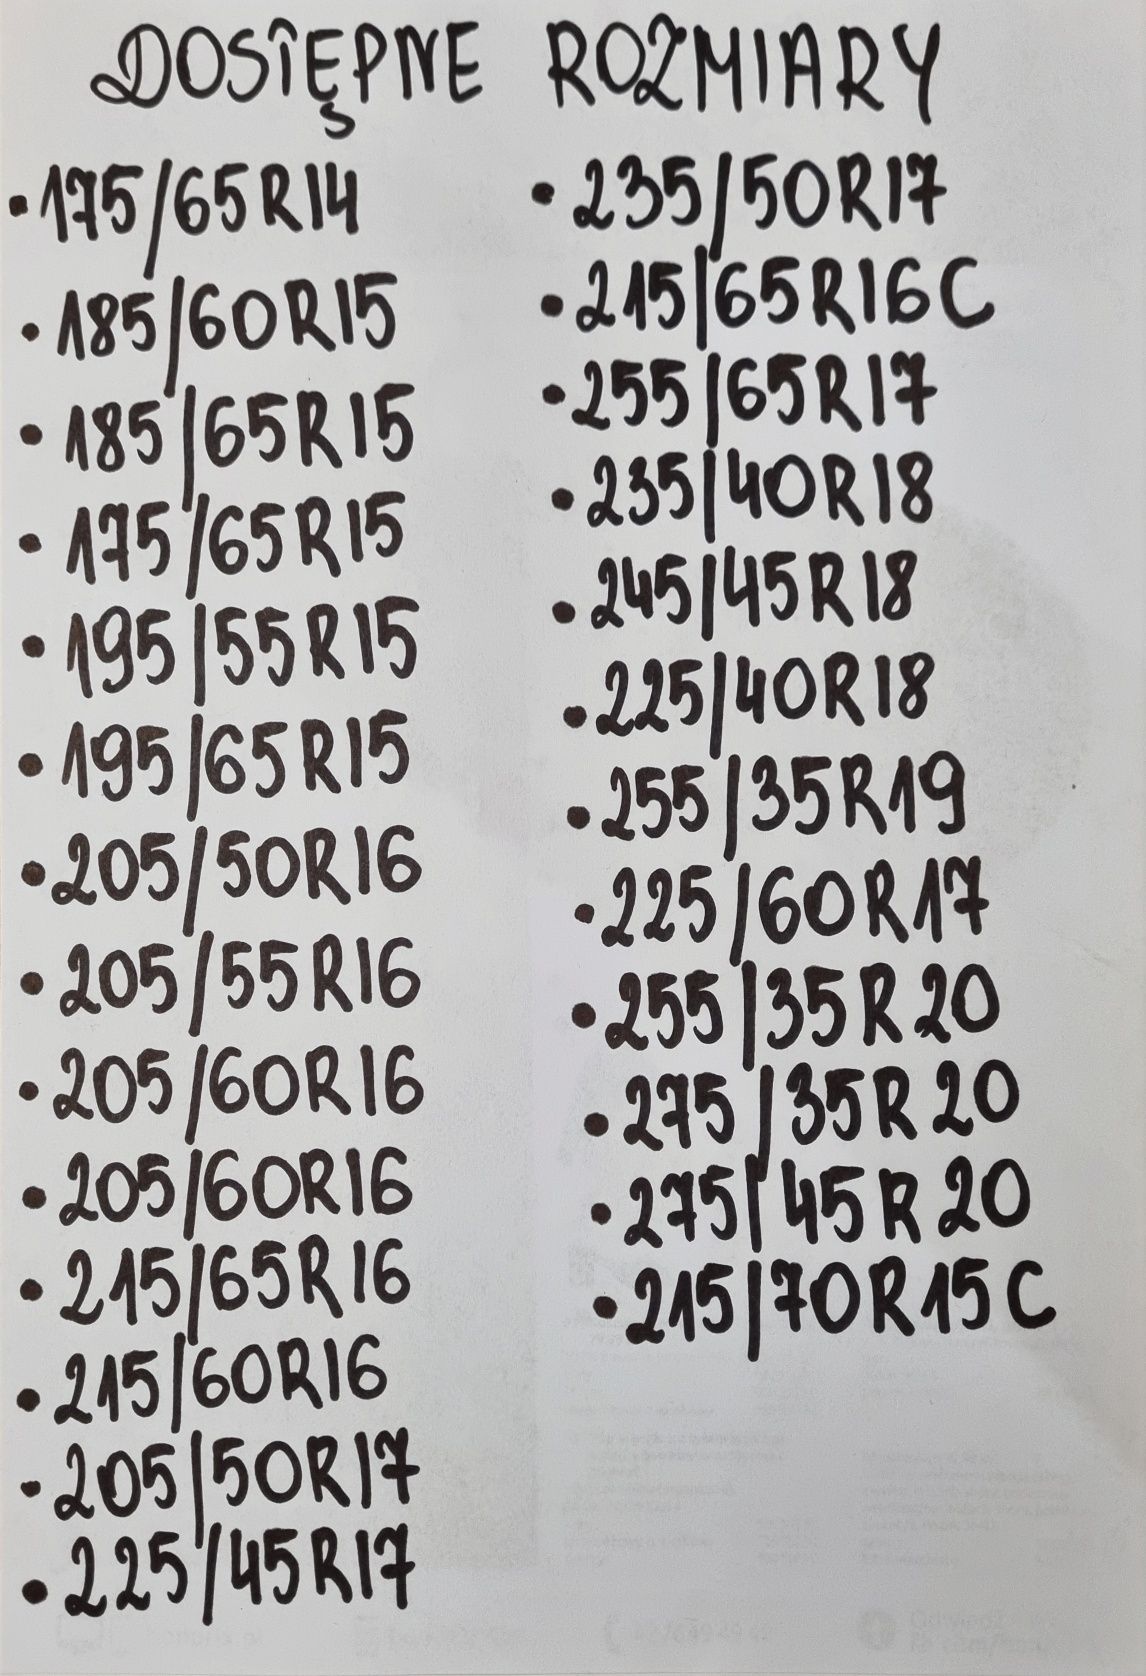 DOSTĘPNE ROZMIARY
• 175/65R14
• 185/60R15
• 185/65R15
• 175/65R15
• 195/55R15
• 195/65R15
• 205/50R16
• 205/55R16
• 205/60R16
• 205/60R16
• 215/65R16
• 215/60R16
• 205/50R17
• 225/45R17
• 235/50R17
• 215/65R16C
• 255/65R17
• 235/40R18
• 245/45R18
• 225/40R18
• 255/35R19
• 225/60R17
• 255/35R20
• 275/35R20
• 275/45R20
• 215/70R15C